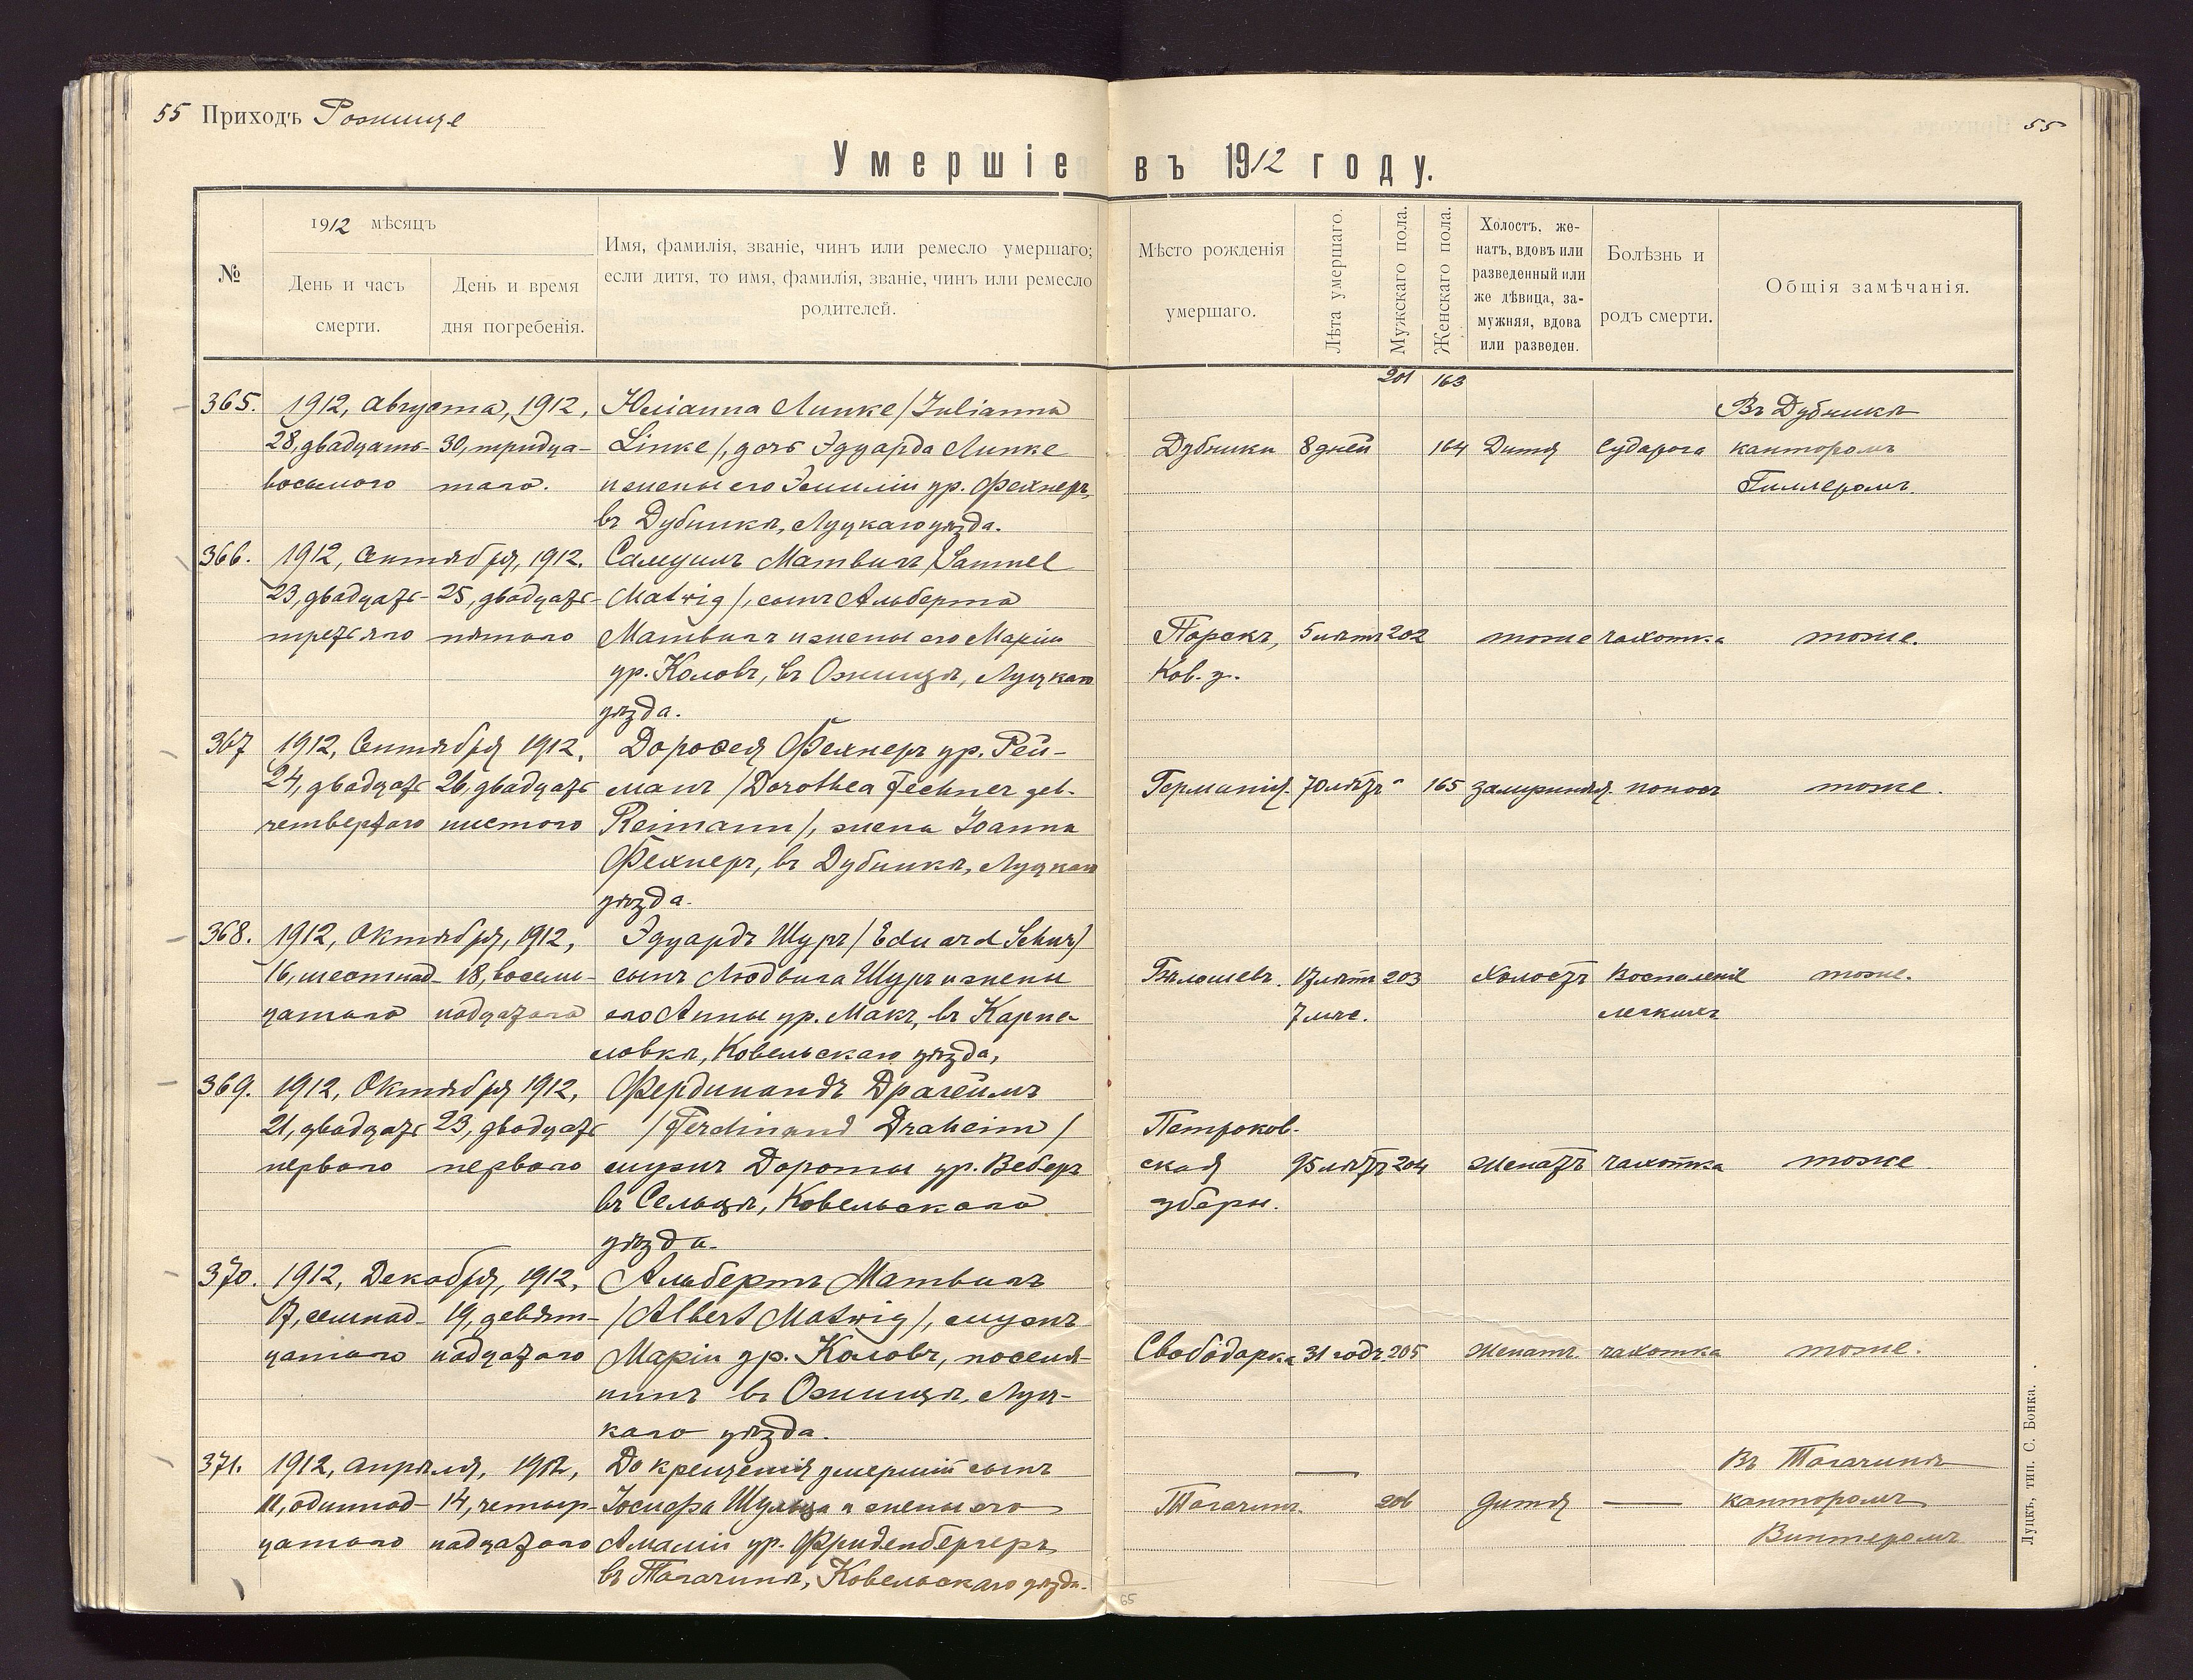 55 Приходъ Рожище
55
Умершіе въ 1912 году.
№
1912 мѣсяцъ
День и часъ смерти.
День и время дня погребенія.
Имя, фамилія, званіе, чинъ или ремесло умершаго;
если дитя, то имя, фамилія, званіе, чинъ или ремесло
родителей.
Мѣсто рожденія
умершаго.
Лѣта умершаго.
Мужскаго пола.
Женскаго пола.
Холостъ, же-
натъ, вдовъ или
разведенный или
же дѣвица, за-
мужняя, вдова
или разведен.
Болѣзнь и
родъ смерти.
Общія замѣчанія.
201 163
365. 1912, Августа, 1912, Юліанна Линке /Julianna Въ Дубникѣ
28, двадцать- 30, тридца- Linke/, дочь Эдуарда Линке Дубники 8 дней 164 Дитя Судорога канторомъ
восьмого таго. и жены его Эмиліи ур. Фехнеръ, Гиллеромъ.
въ Дубникѣ, Луцкаго уѣзда.
366. 1912, Сентября, 1912. Самуилъ Матвигъ /Samuel
23, двадцать- 25, двадцать- Matwig/, сынъ Альберта
третьяго пятаго Матвигъ и жены его Маріи Порскъ, 5 лѣтъ 202 тоже чахотка тоже.
ур. Коловъ, въ Озжищѣ, Луцкаго Ков. у.
уѣзда.
367 1912, Сентября 1912, Доросея Фехнеръ ур. Рей-
24, двадцать 26, двадцать манъ /Dorothea Fechner geb. Германія. 70 лѣтъ 165 замужняя. поносъ тоже.
четвертаго шестого Reimann/, жена Іоанна
Фехнеръ, въ Дубникѣ, Луцкаго
уѣзда.
368. 1912, Октября, 1912, Эдуардъ Шуръ /Eduard Schur/
16, шестнад- 18, восем- сынъ Людвига Шуръ и жены 17 лѣтъ 203 Холостъ Воспаленіе тоже.
цатаго надцатаго его Анны ур. Макъ, въ Карпи- 7 мѣс. легкихъ
ловкѣ, Ковельскаго уѣзда,
369. 1912, Октября 1912, Фердинандъ Драгеймъ
21, двадцать 23, двадцать /Ferdinand Draheim/ Петроков-
перваго перваго мужъ Дороты ур. Веберъ ская 95 лѣтъ 204 Женатъ чахотка тоже
въ Сельцѣ, Ковельскаго губерн.
уѣзда.
370. 1912, Декабря, 1912, Альбертъ Матвигъ
17, семнад- 19, девят- /Albert Matwig/, мужъ
цатаго надцатаго Маріи ур. Коловъ, поселя- Свободарка 31 годъ 205 Женатъ чахотка тоже.
нинъ въ Озжищѣ, Луц-
каго уѣзда.
371. 1912, Апрѣля, 1912, До крещенія умершій сынъ — Въ Тагачинѣ
11, одиннад- 14, четыр- Іосифа Шульца и жены его Тагачинъ. 206 дитя — канторомъ
цатаго надцатаго Амаліи ур. Фриденбергеръ Винтеромъ
въ Тагачинѣ, Ковельскаго уѣзда.
Луцкъ, тип. С. Бонка.
65